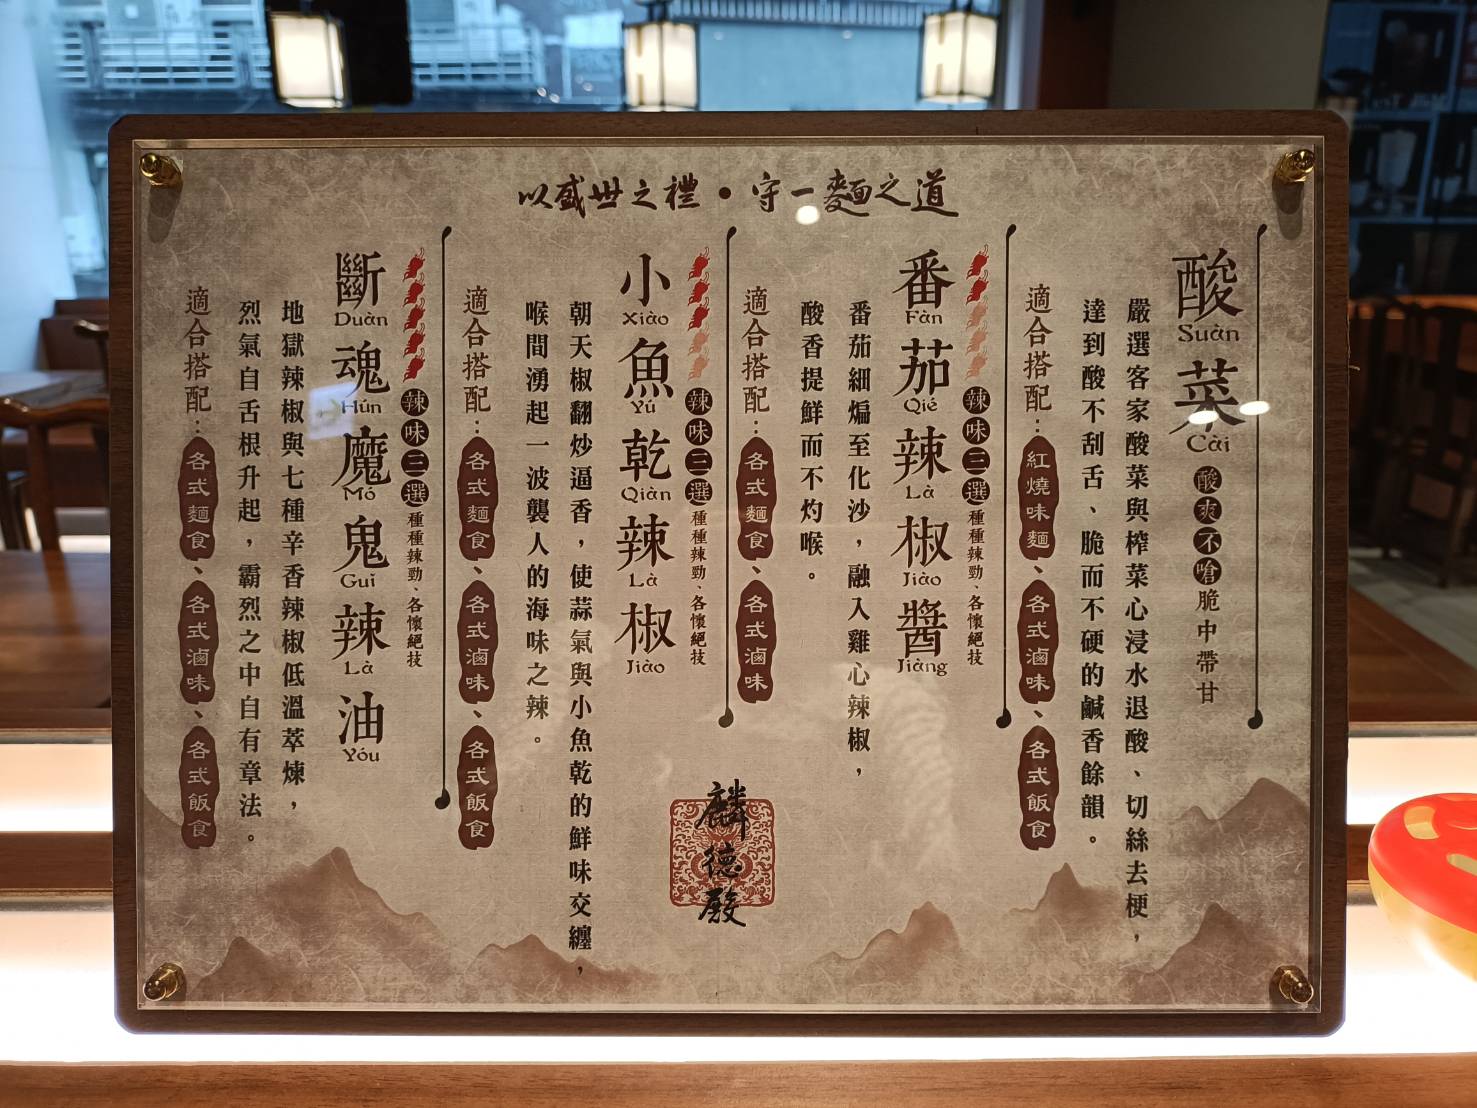 以盛世之禮•守一麵之道
酸菜
Suàn Cài
酸爽不嗆 脆中帶甘
嚴選客家酸菜與榨菜心浸水退酸、切絲去梗，
達到酸不刮舌、脆而不硬的鹹香餘韻。
適合搭配：紅燒味麵、各式滷味、各式飯食
番茄辣椒醬
Fàn Qié Là Jiào Jiàng
辣味三選 種種辣勁、各懷絕技
番茄細煸至化沙，融入雞心辣椒，
酸香提鮮而不灼喉。
適合搭配：各式麵食、各式滷味
小魚乾辣椒
Xiào Yú Qiàn Là Jiào
辣味三選 種種辣勁、各懷絕技
朝天椒翻炒逼香，使蒜氣與小魚乾的鮮味交纏，
喉間湧起一波襲人的海味之辣。
適合搭配：各式麵食、各式滷味、各式飯食
斷魂魔鬼辣油
Duàn Hún Mó Gui Là Yóu
辣味三選 種種辣勁、各懷絕技
地獄辣椒與七種辛香辣椒低溫萃煉，
烈氣自舌根升起，霸烈之中自有章法。
適合搭配：各式麵食、各式滷味、各式飯食
麟德殿